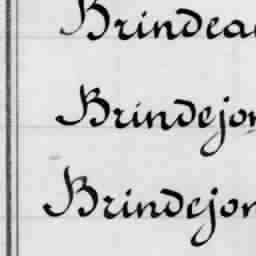 Brindea
Brindejon
Brindejon